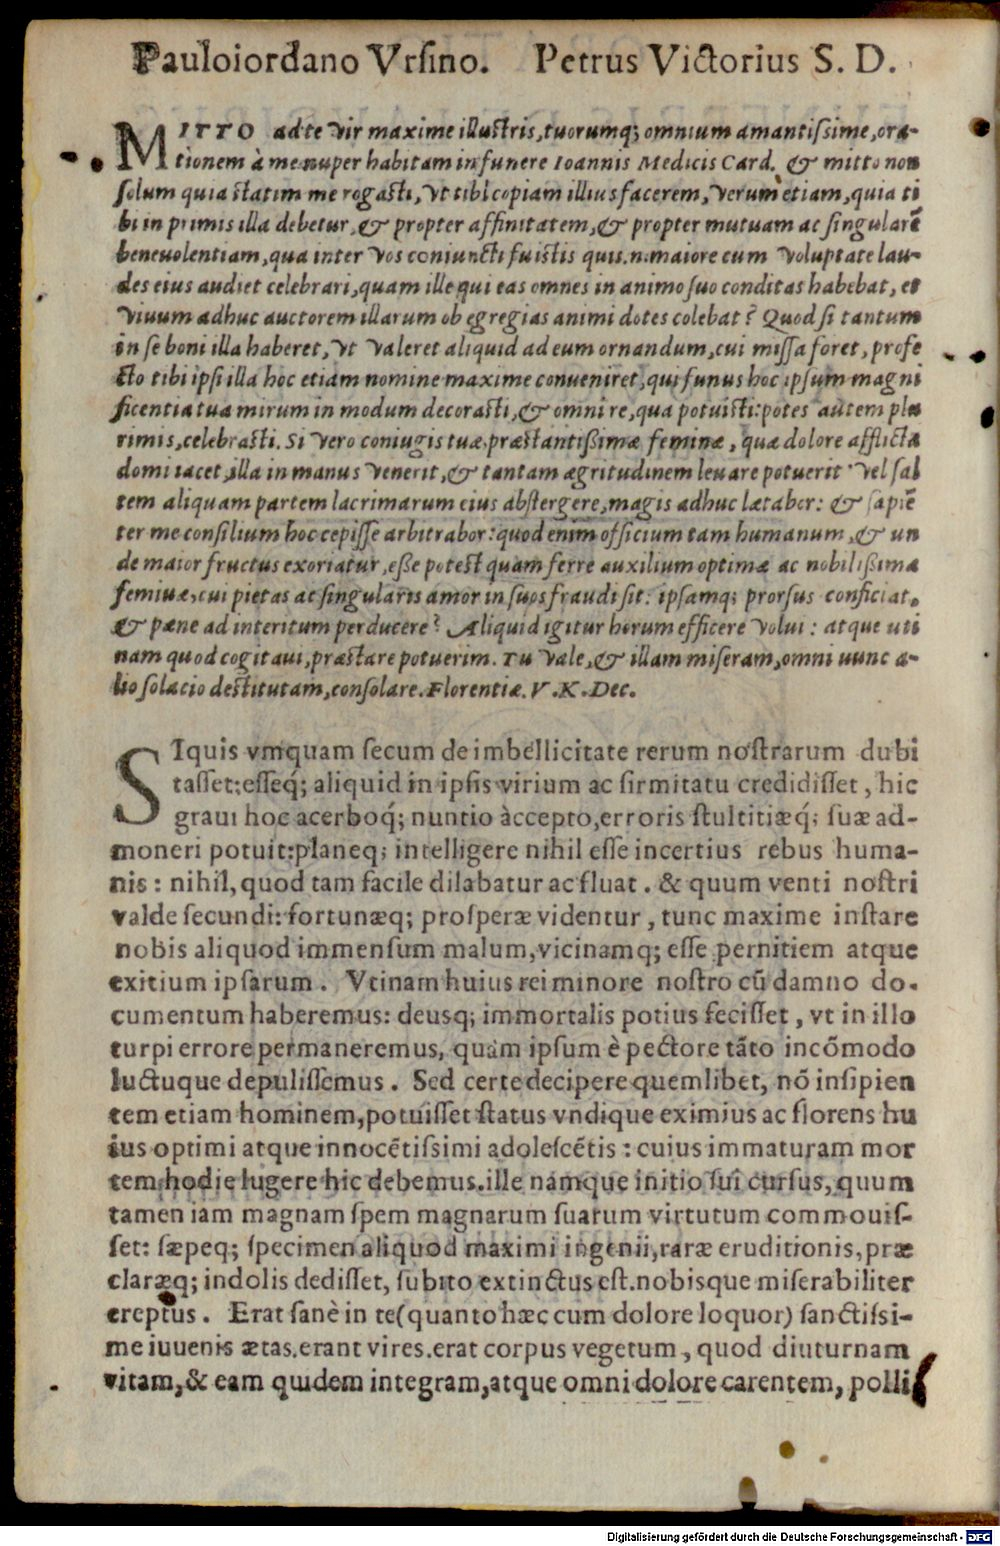 Pauloiordano Vrsino. Petrus Victorius S. D.
MITTO ad te vir maxime illustris, tuorumq; omnium amantissime, ora-
tionem à me nuper habitam in funere Ioannis Medicis Card. & mitto non
solum quia statim me rogasti, vt tibi copiam illius facerem, verum etiam, quia ti
bi in primis illa debetur, & propter affinitatem, & propter mutuam ac singularē
beneuolentiam, qua inter vos coniuncti fuistis quis.n.maiore cum voluptate lau-
des eius audiet celebrari, quam ille qui eas omnes in animo suo conditas habebat, et
viuum adhuc auctorem illarum ob egregias animi dotes colebat? Quod si tantum
in se boni illa haberet, vt valeret aliquid ad eum ornandum, cui missa foret, profe
cto tibi ipsi illa hoc etiam nomine maxime conueniret, qui funus hoc ipsum magni
ficentia tua mirum in modum decorasti, & omni re, qua potuisti: potes autem plu
rimis, celebrasti. Si vero coniugis tuæ præstantißimæ feminæ, quæ dolore afflicta
domi iacet, illa in manus venerit, & tantam ægritudinem leuare potuerit vel sal
tem aliquam partem lacrimarum eius abstergere, magis adhuc lætabor: & sapiē
ter me consilium hoc cepisse arbitrabor: quod enim officium tam humanum, & un
de maior fructus exoriatur, eße potest quam ferre auxilium optimæ ac nobilißimæ
femiuæ, cui pietas ac singularis amor in suos fraudi sit: ipsamq; prorsus conficiat,
& pæne ad interitum perducere? Aliquid igitur horum efficere volui: atque uti
nam quod cogitaui, præstare potuerim. Tu vale, & illam miseram, omni uunc a-
lio solacio destitutam, consolare. Florentiæ. V. K. Dec.
SIquis vmquam secum de imbellicitate rerum nostrarum dubi
tasset: esseq́; aliquid in ipsis virium ac sirmitatu credidisset, hic
graui hoc acerboq́; nuntio àccepto, erroris stultitiæq́; suæ ad-
moneri potuit: planeq; intelligere nihil esse incertius rebus huma-
nis: nihil, quod tam facile dilabatur ac fluat. & quum venti nostri
valde secundi: fortunæq; prosperæ videntur, tunc maxime instare
nobis aliquod immensum malum, vicinamq; esse pernitiem atque
exitium ipsarum. Vtinam huius rei minore nostro cū damno do-
cumentum haberemus: deusq; immortalis potius fecisset, vt in illo
turpi errore permaneremus, quam ipsum è pectore tāto incōmodo
luctuque depulissemus. Sed certe decipere quemlibet, nō insipien
tem etiam hominem, potuisset status vndique eximius ac florens hu
ius optimi atque innocētissimi adolescētis: cuius immaturam mor
tem hodie lugere hic debemus. ille namque initio sui cursus, quum
tamen iam magnam spem magnarum suarum virtutum commouis-
set: sæpeq; specimen aliquod maximi ingenii, raræ eruditionis, præ
claræq; indolis dedisset, subito extinctus est. nobisque miserabiliter
ereptus. Erat sanè in te (quanto hæc cum dolore loquor) sanctissi-
me iuuenis ætas. erant vires. erat corpus vegetum, quod diuturnam
vitam, & eam quidem integram, atque omni dolore carentem, polli
Digitalisierung gefördert durch die Deutsche Forschungsgemeinschaft - DFG